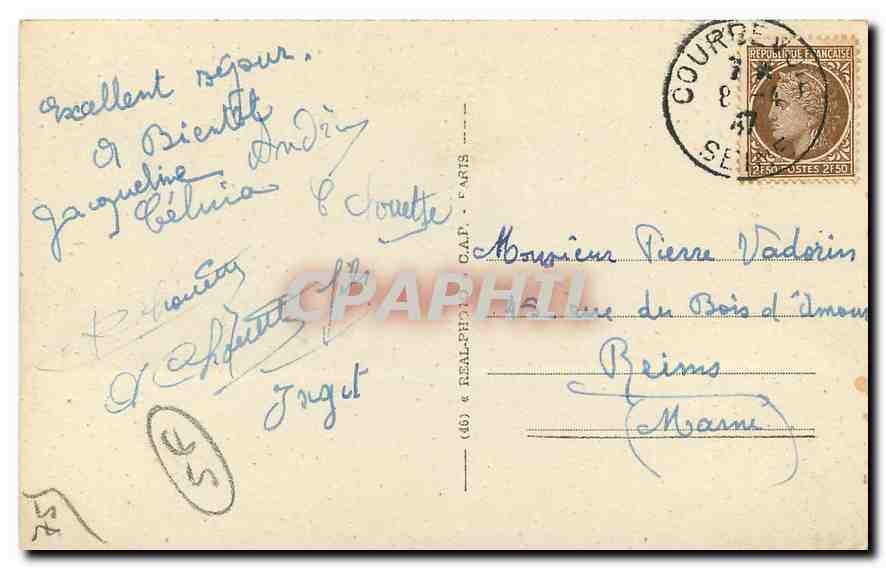 Excellent séjour.
A Bientôt
Jacqueline André
Célina C Chouette
A Chouette fils
Ingit
5F
75
(46) « REAL-PHOTO » C.A.P. - PARIS
COURBEVOIE
8 - 4
47
SEINE
REPUBLIQUE FRANÇAISE
2F50 POSTES 2F50
Monsieur Pierre Vadorin
rue du Bois d'Amour
Reims
(Marne)
CPAPHIL